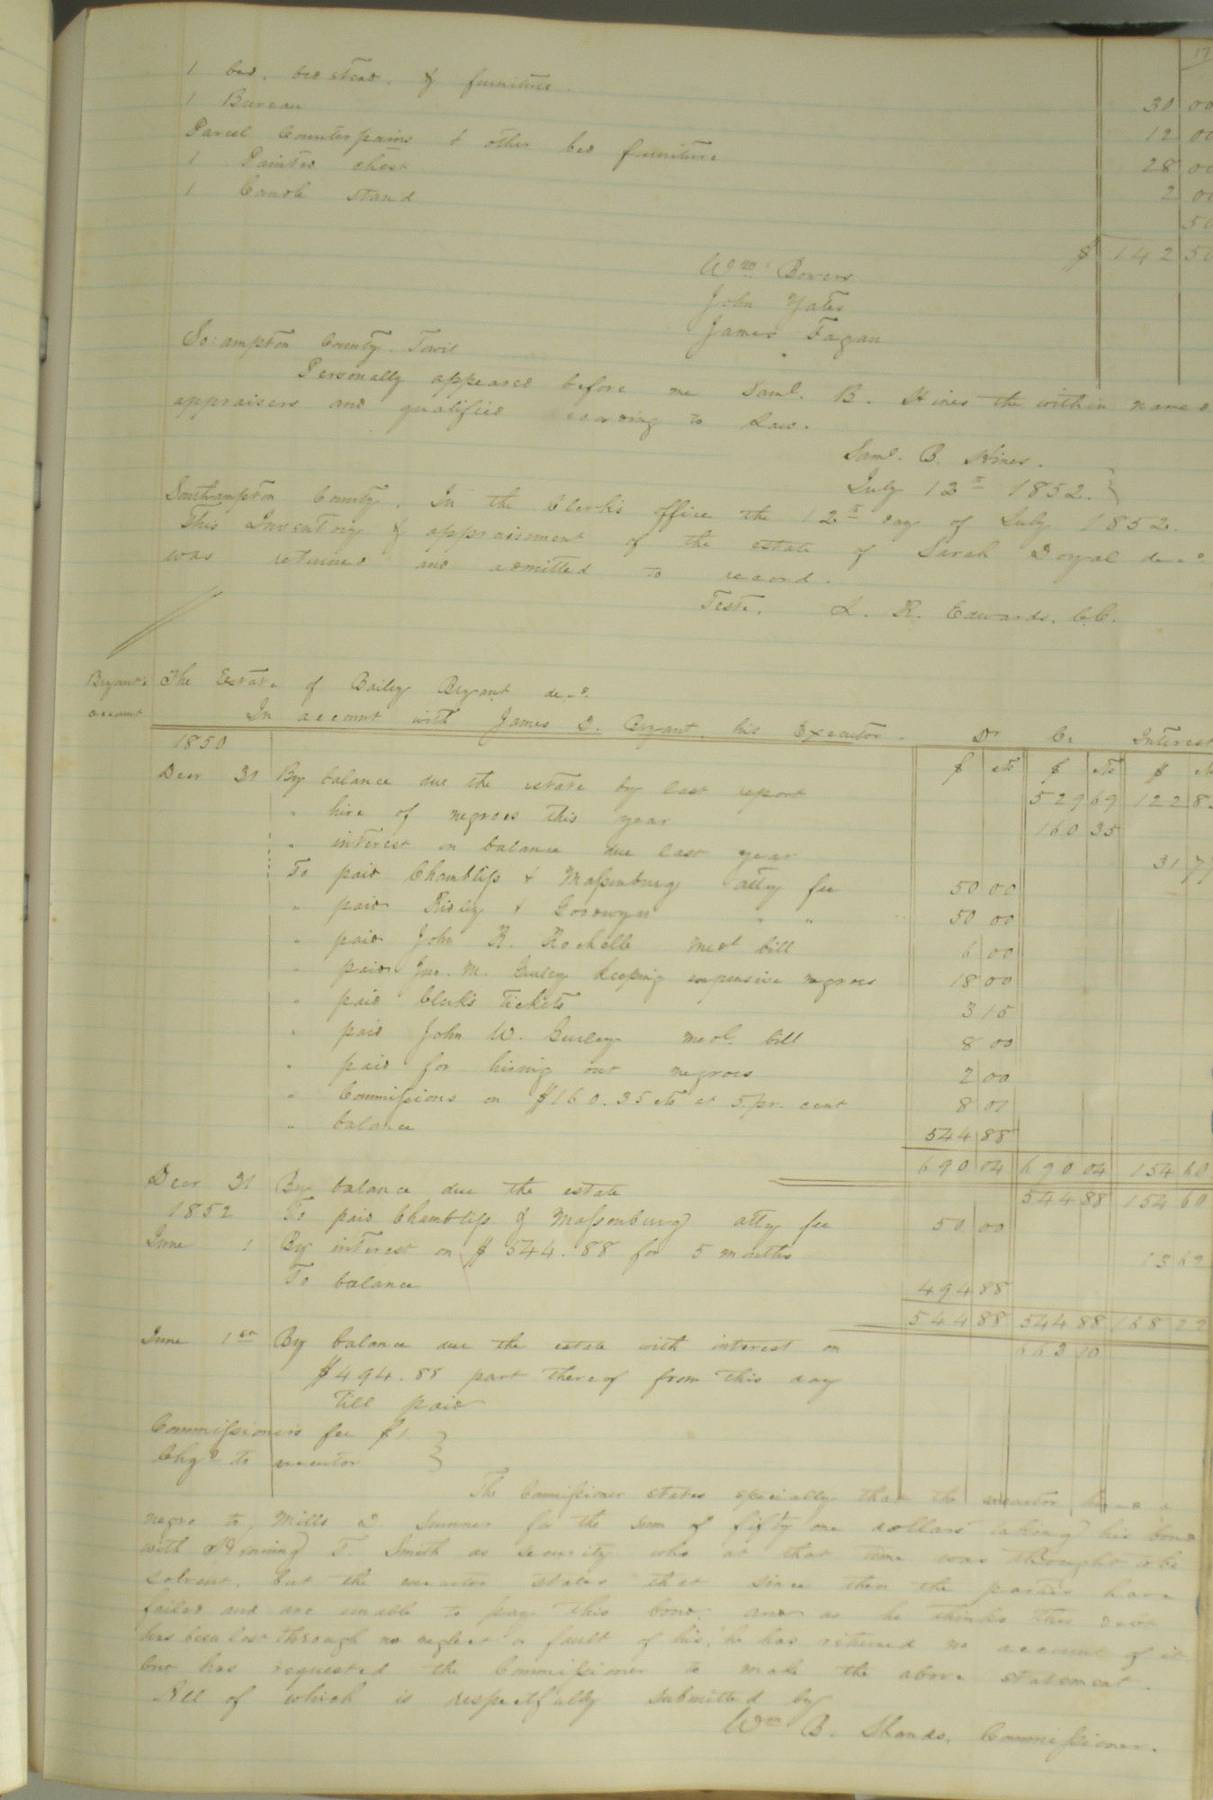 17
1 bed, bedstead, & furniture 30 00
1 Bureau 12 00
Parcel Counterpains & other bed furniture 28 00
1 Painted chest 2 00
1 Candle stand 50
$ 142 50
Wm Bowers
John Yates
James Fagan
So:ampton County. Towit
Personally appeared before me Saml. B. Hines the within named
appraisers and qualified according to Law.
Saml. B. Hines.
July 12th 1852.
Southampton County. In the Clerk's office the 12th day of July 1852.
This Inventory & appraisement of the estate of Sarah Doyal decd
was returned and admitted to record.
Teste. L. R. Edwards, C.C.
Bryant's account
The Estate of Bailey Bryant decd
In account with James D. Bryant his Executor. Dr Cr Interest
1850 $ cts $ cts $
Decr 31 By balance due the estate by last report 529 69 122 8
" hire of negroes this year 160 35
" interest on balance due last year 31 77
To paid Chambliss & Massenburg atty fee 50 00
" paid Ridley & Goodwyn " " 50 00
" paid John R. Rochelle medl bill 6 00
" paid Jno. M. Gurley keeping expensive negroes 18 00
" paid Clerk's Tickets 3 15
" paid John W. Gurley medl. bill 8 00
" paid for hiring out negroes 2 00
" Commissions on $160.35 cts at 5 pr. cent 8 01
" balance 544 88
690 04 690 04 154 60
Decr 31 By balance due the estate 544 88 154 60
1852 To paid Chambliss & Massenburg atty fee 50 00
June 1 By interest on $544.88 for 5 months 13 62
To balance 494 88
544 88 544 88 168 22
June 1st By balance due the estate with interest on 663 10
$494.88 part thereof from this day
till paid
Commissioners fee $1.
Chgd to executor
The Commissioner states specially that the executor hired a
negro to Mills D. Sumner for the sum of fifty one dollars taking his bond
with T. Smith as security who at that time was thought to be
solvent, but the executor states that since then the parties have
failed and are unable to pay this bond, and as he thinks this debt
has been lost through no neglect or fault of his, he has returned no account of it
but has requested the Commissioner to make the above statement.
All of which is respectfully submitted by
Wm B. Shands, Commissioner.